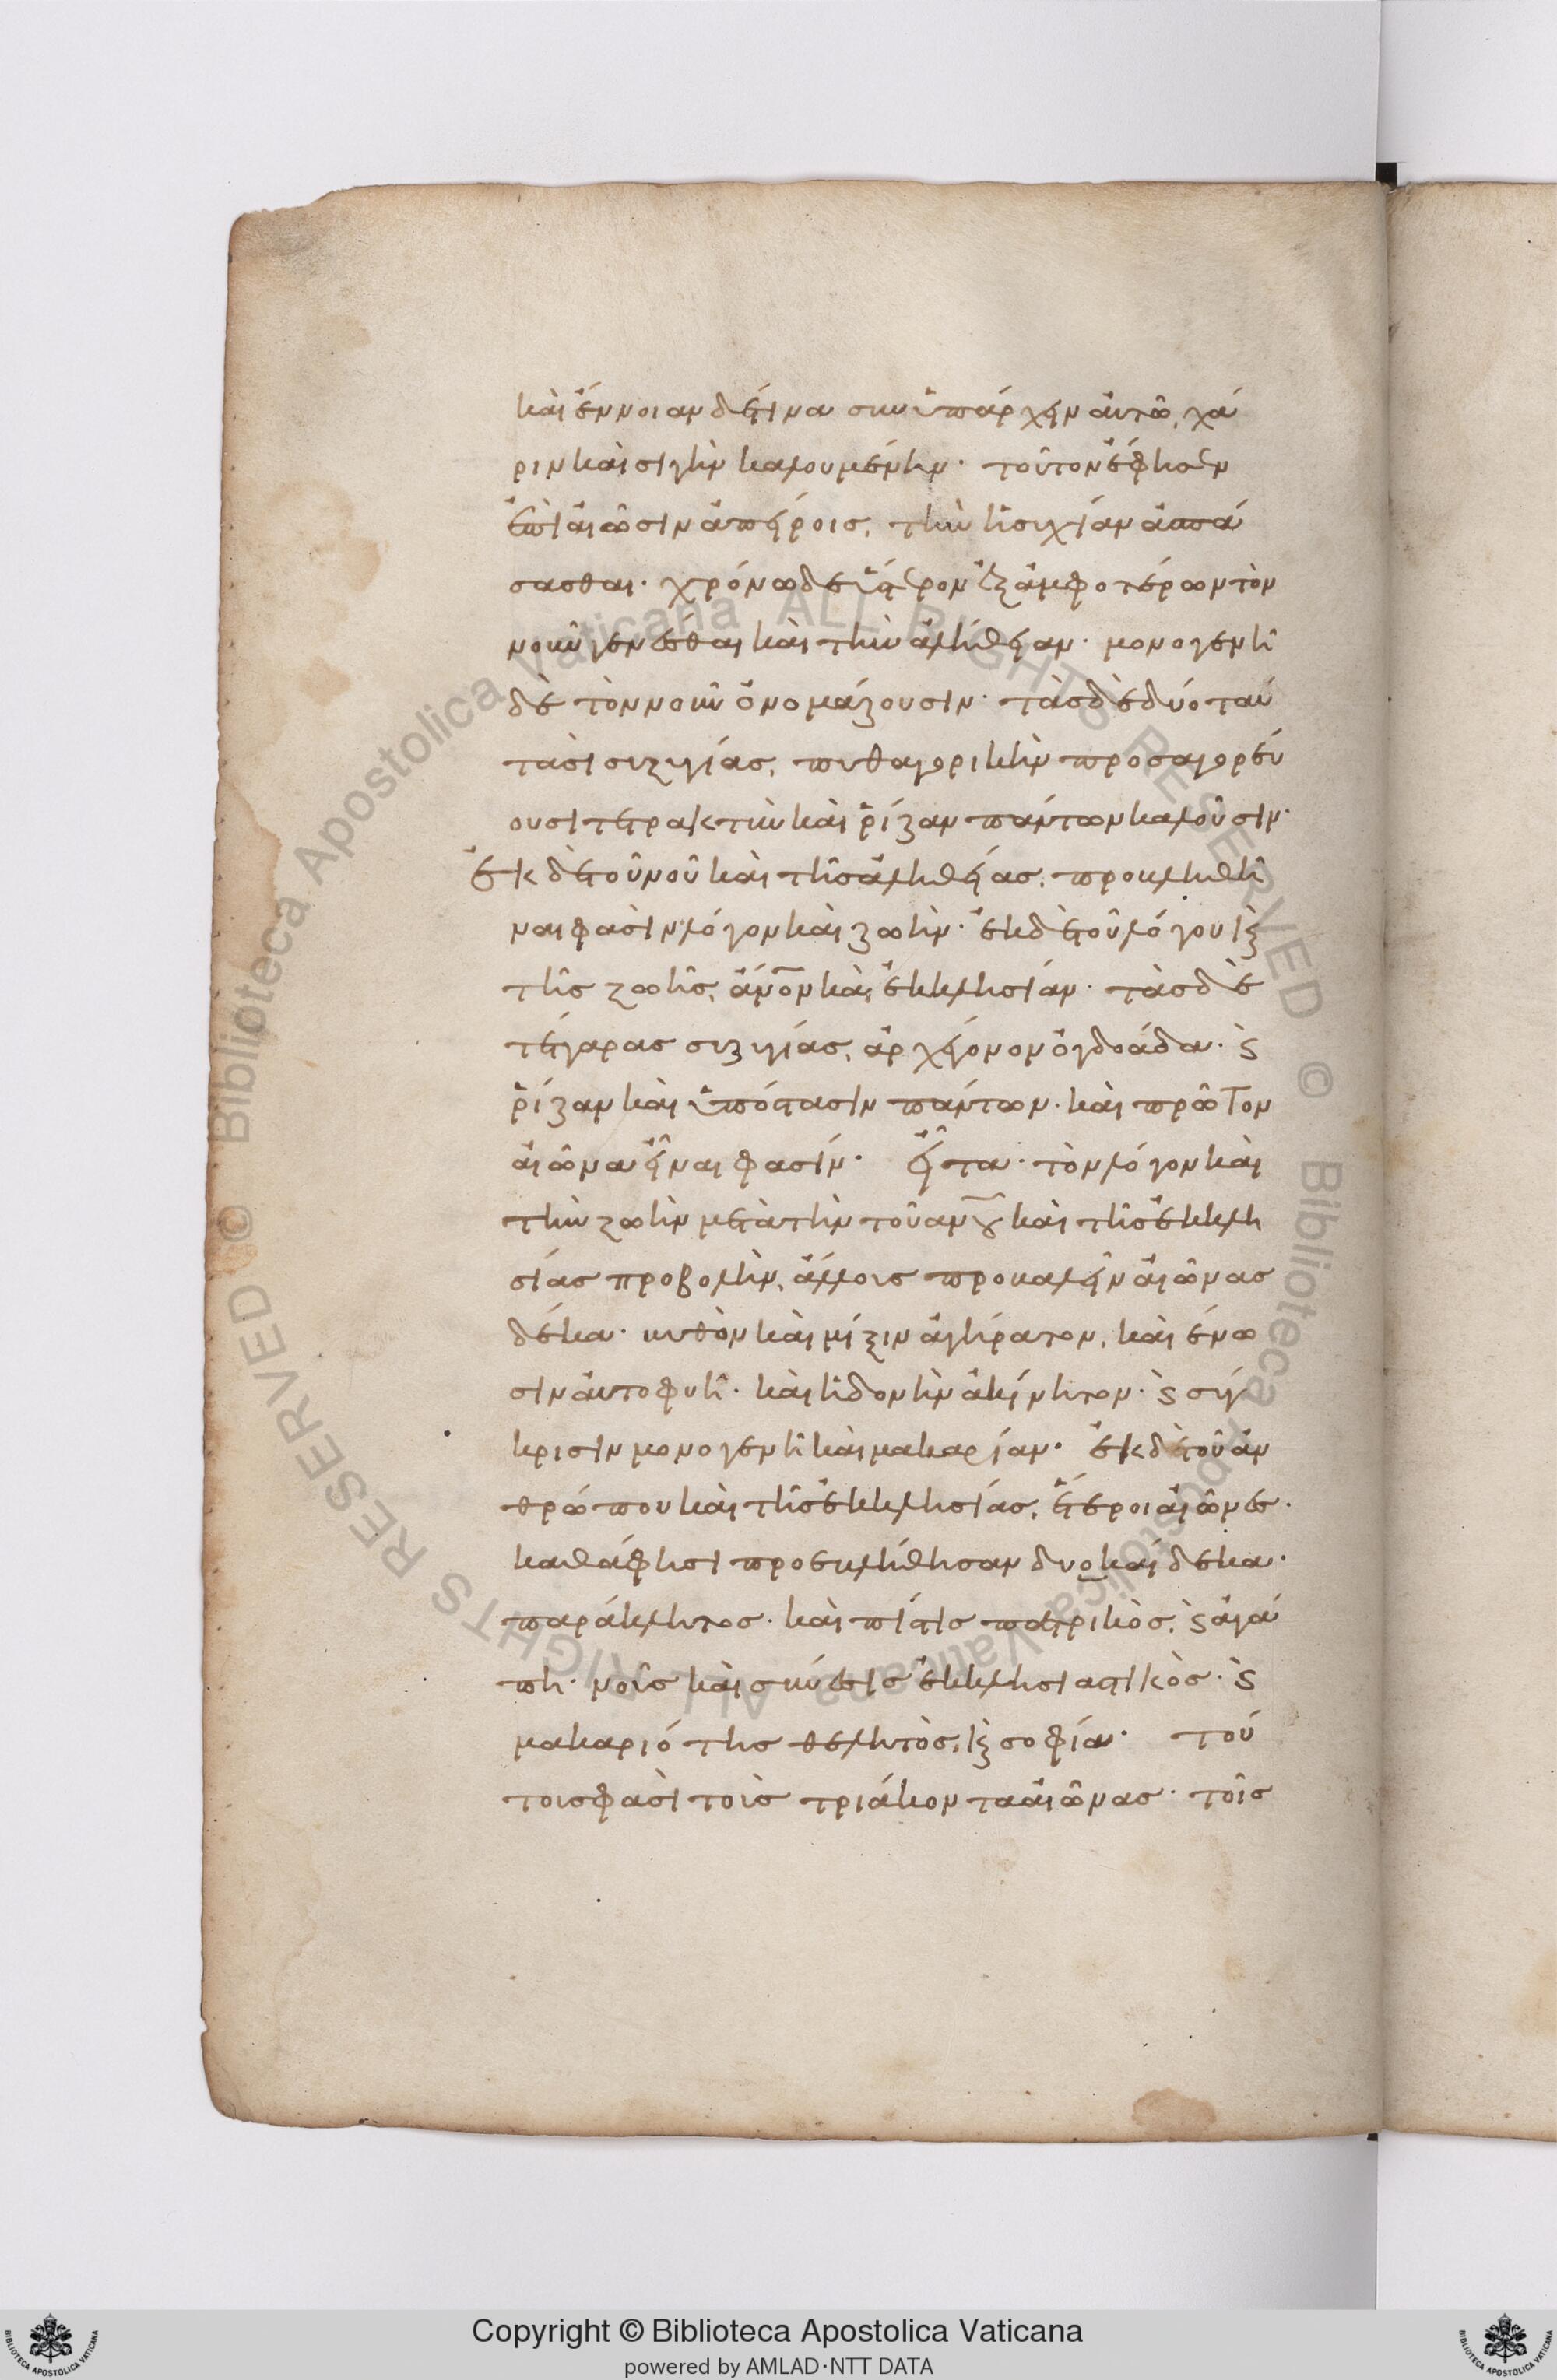 καὶ ἔννοιαν δέ τινα συνυπάρχειν αὐτῶ, χά
ριν καὶ σιγὴν καλουμένην· τοῦτον ἔφησεν
ἐπὶ αἰῶσιν ἀπείροις, τὴν ἡσυχίαν ἀσπά
σασθαι· χρόνω δὲ ὕστερον ἐξ ἀμφοτέρων τὸν
νοῦν γενέσθαι καὶ τὴν ἀλήθειαν· μονογενῆ
δὲ τὸν νοῦν ὀνομάζουσιν· τὰς δὲ δύο ταύ
τας συζυγίας, πυθαγορικὴν προσαγορεύ
ουσι τετρακτὺν καὶ ῥίζαν πάντων καλοῦσιν·
ἐκ δὲ τοῦ νοῦ καὶ τῆς ἀληθείας, προκληθῆ
ναι φασὶν λόγον καὶ ζωήν· ἐκ δὲ τοῦ λόγου κ
τῆς ζωῆς, ἄνον καὶ ἐκκλησίαν· τὰς δὲ
τέσσαρας συζυγίας, ἀρχέγονον ὀγδοάδα· κ
ῥίζαν καὶ ὑπόστασιν πάντων· καὶ πρῶτον
αἰῶνα εἶναι φασίν· εἶτα· τὸν λόγον καὶ
τὴν ζωὴν μετὰ τὴν τοῦ ανου καὶ τῆς ἐκκλη
σίας προβολὴν, ἄλλους προκαλεῖν αἰῶνας
δέκα· βυθὸν καὶ μίξιν ἀγήρατον, καὶ ένω
σιν αὐτοφυῆ· καὶ ἡδονὴν ἀκίνητον· κ σύγ
κρισιν μονογενῆ καὶ μακαρίαν· ἐκ δὲ τοῦ ἀν
θρώπου καὶ τῆς ἐκκλησίας, ἕτεροι αἰῶνες·
καθά φησι προεκλήθησαν δυοκαίδεκα·
παράκλητος· καὶ πίστις πατρικὸς, κ ἀγά
πη· νοῦς καὶ σύνεσις ἐκκλησιαστικὸς· κ
μακαριότης θελητὸς, κ σοφία· τού
τοις φασὶ τοὶς τριάκοντα αἰῶνας· τοῖς